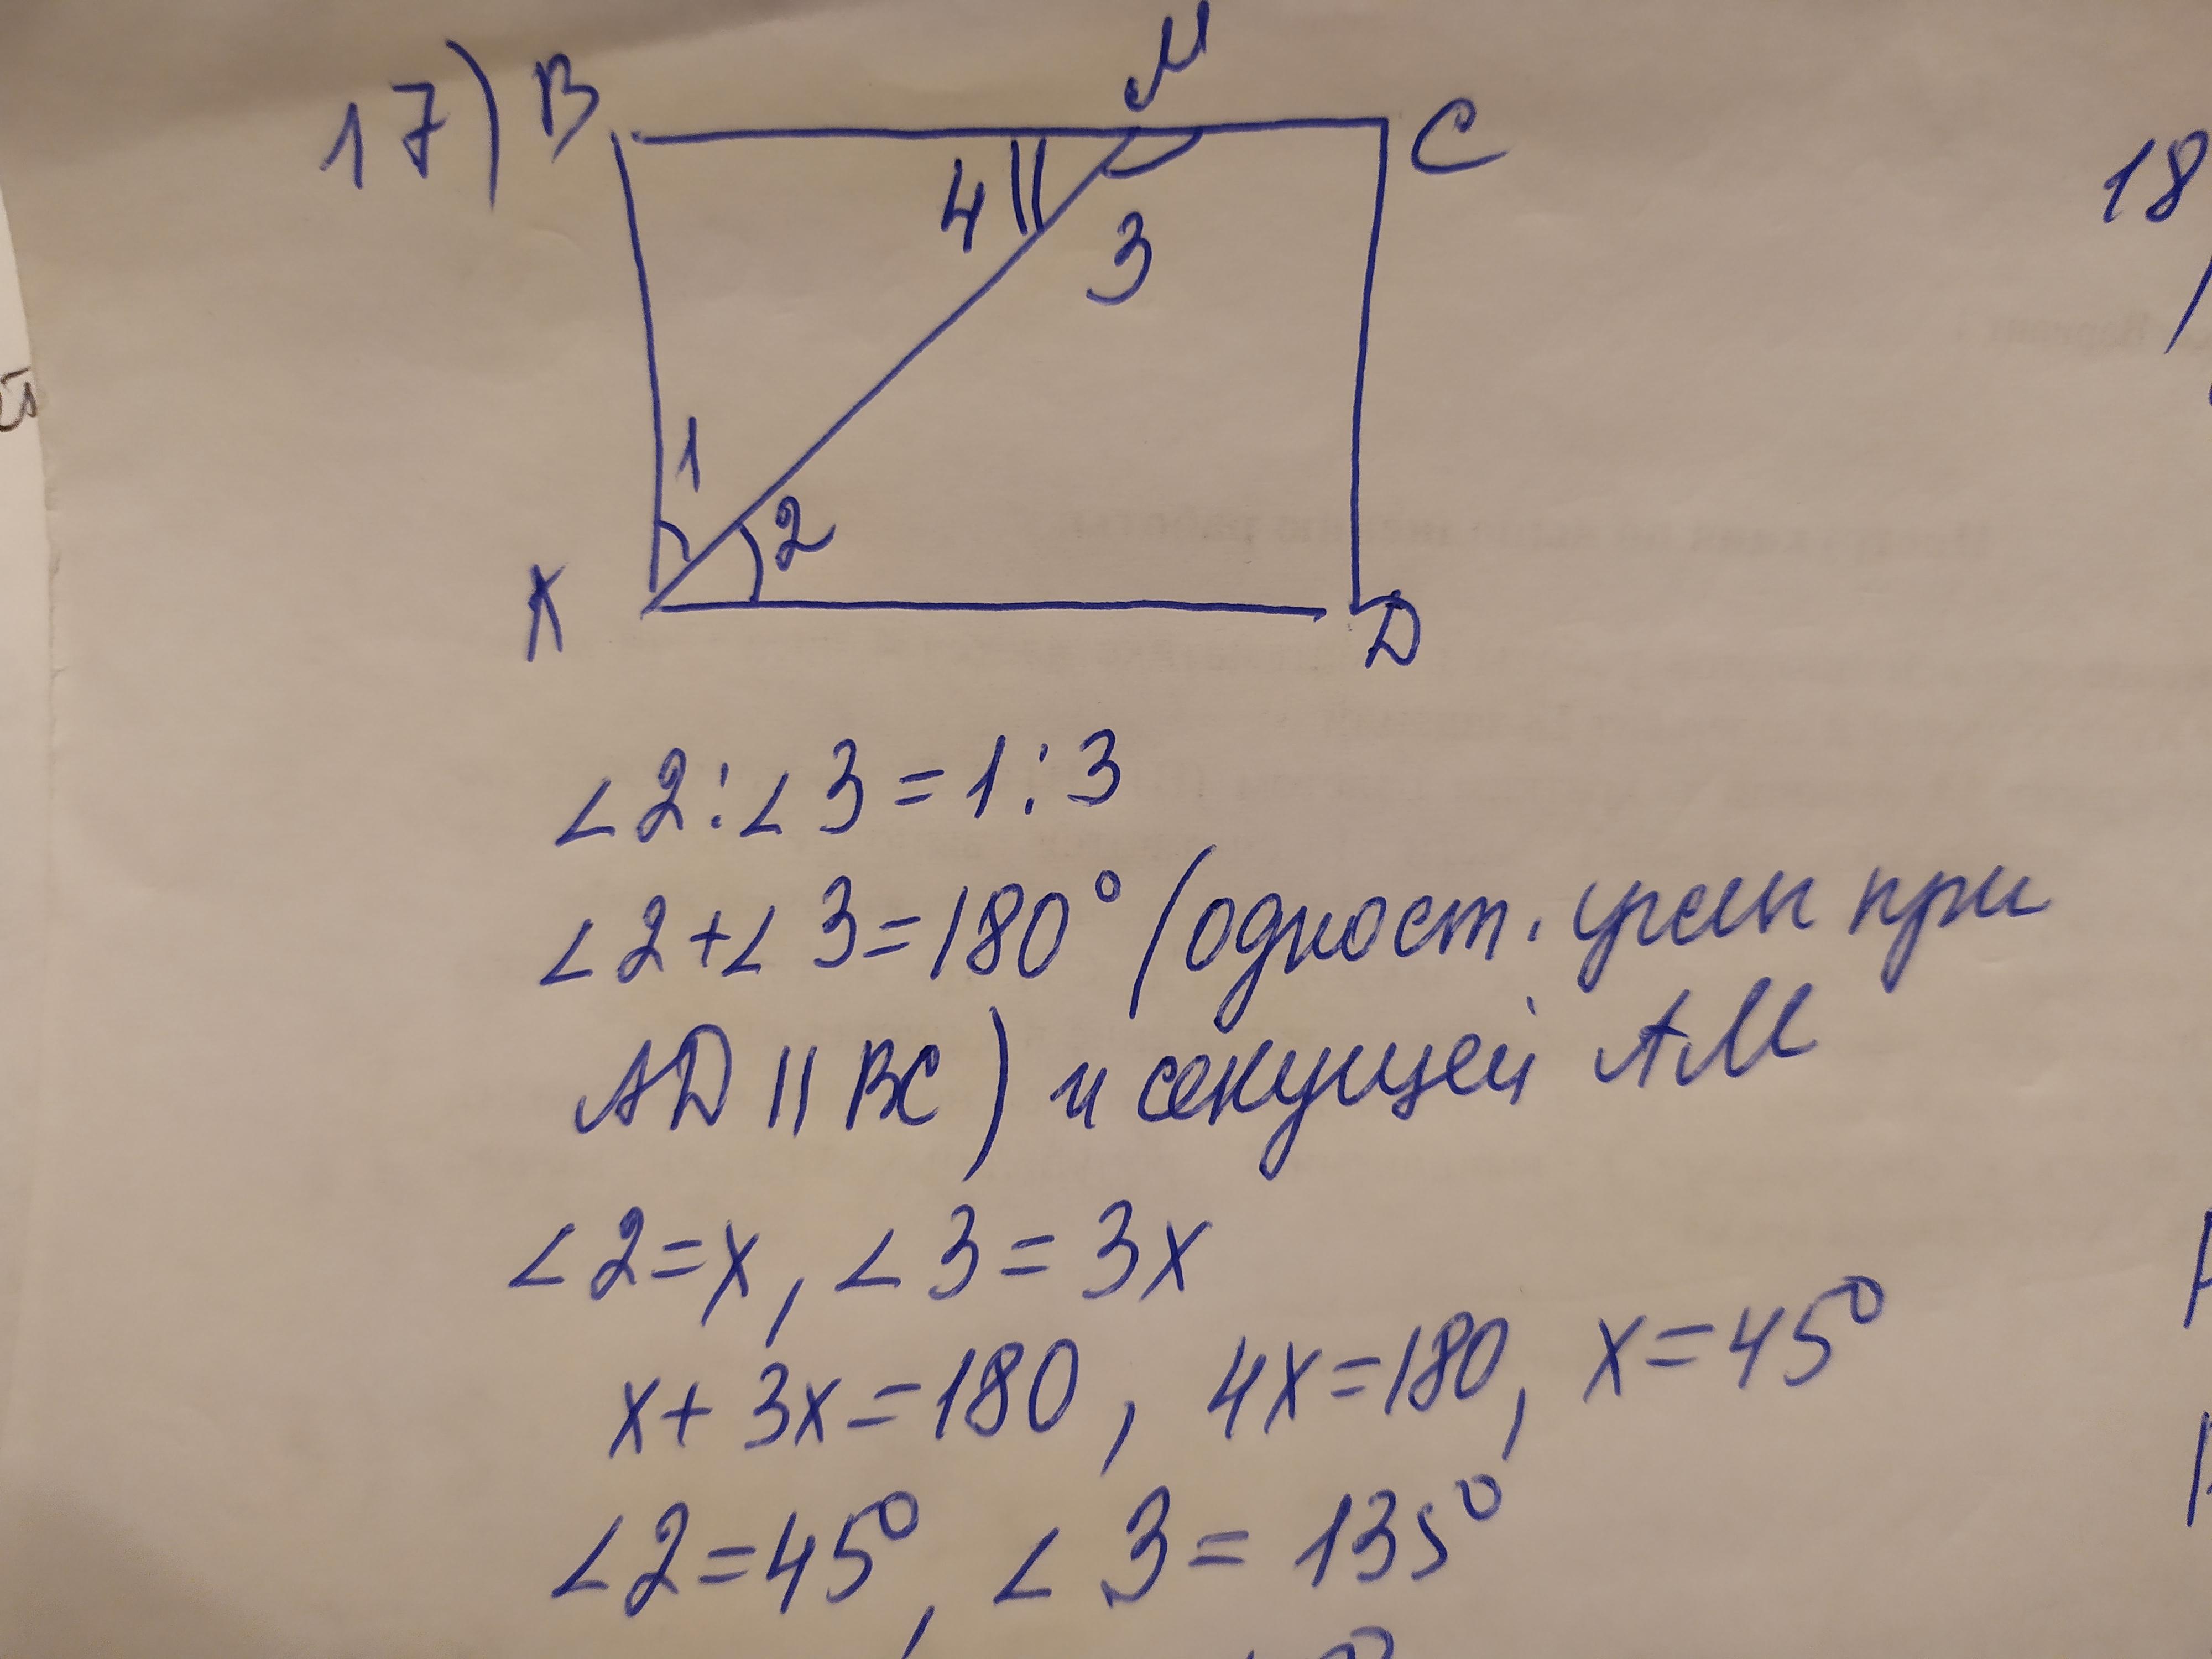 17) B M C
4 3
1
2
A D
18
∠2:∠3=1:3
∠2+∠3=180° (одност. углы при
AD || BC) и секущей AM
∠2=x, ∠3=3x
x+3x=180, 4x=180, x=45°
∠2=45°, ∠3=135°